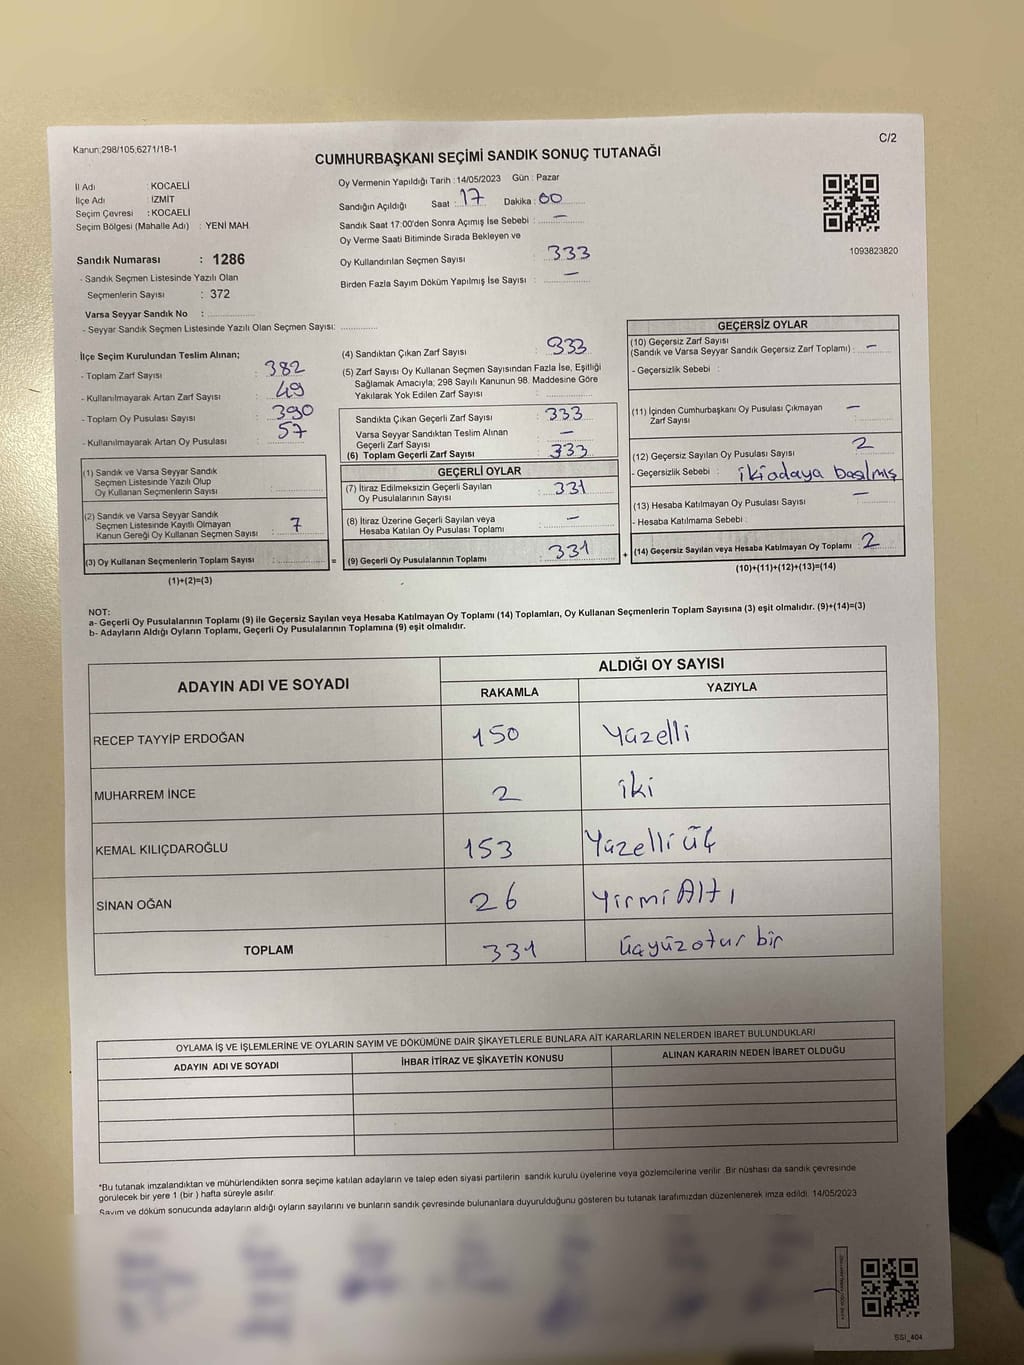 Kanun;298/105,6271/18-1
C/2
CUMHURBAŞKANI SEÇİMİ SANDIK SONUÇ TUTANAĞI
İl Adı : KOCAELİ
İlçe Adı : İZMİT
Seçim Çevresi : KOCAELİ
Seçim Bölgesi (Mahalle Adı) : YENİ MAH.
Sandık Numarası : 1286
- Sandık Seçmen Listesinde Yazılı Olan
Seçmenlerin Sayısı : 372
Varsa Seyyar Sandık No :
- Seyyar Sandık Seçmen Listesinde Yazılı Olan Seçmen Sayısı:
Oy Vermenin Yapıldığı Tarih :14/05/2023 Gün : Pazar
Sandığın Açıldığı Saat : 17 Dakika : 00
Sandık Saat 17:00'den Sonra Açımış İse Sebebi : —
Oy Verme Saati Bitiminde Sırada Bekleyen ve
Oy Kullandırılan Seçmen Sayısı 333
Birden Fazla Sayım Döküm Yapılmış İse Sayısı : —
1093823820
İlçe Seçim Kurulundan Teslim Alınan;
- Toplam Zarf Sayısı : 382
- Kullanılmayarak Artan Zarf Sayısı : 49
- Toplam Oy Pusulası Sayısı : 390
- Kullanılmayarak Artan Oy Pusulası : 57
(1) Sandık ve Varsa Seyyar Sandık
Seçmen Listesinde Yazılı Olup
Oy Kullanan Seçmenlerin Sayısı :
(2) Sandık ve Varsa Seyyar Sandık
Seçmen Listesinde Kayıtlı Olmayan
Kanun Gereği Oy Kullanan Seçmen Sayısı : 7
(3) Oy Kullanan Seçmenlerin Toplam Sayısı : =
(1)+(2)=(3)
(4) Sandıktan Çıkan Zarf Sayısı : 333
(5) Zarf Sayısı Oy Kullanan Seçmen Sayısından Fazla İse, Eşitliği
Sağlamak Amacıyla; 298 Sayılı Kanunun 98. Maddesine Göre
Yakılarak Yok Edilen Zarf Sayısı :
Sandıkta Çıkan Geçerli Zarf Sayısı : 333
Varsa Seyyar Sandıktan Teslim Alınan
Geçerli Zarf Sayısı : —
(6) Toplam Geçerli Zarf Sayısı : 333
GEÇERLİ OYLAR
(7) İtiraz Edilmeksizin Geçerli Sayılan
Oy Pusulalarının Sayısı : 331
(8) İtiraz Üzerine Geçerli Sayılan veya
Hesaba Katılan Oy Pusulası Toplamı : —
(9) Geçerli Oy Pusulalarının Toplamı : 331 +
GEÇERSİZ OYLAR
(10) Geçersiz Zarf Sayısı
(Sandık ve Varsa Seyyar Sandık Geçersiz Zarf Toplamı) : —
- Geçersizlik Sebebi :
(11) İçinden Cumhurbaşkanı Oy Pusulası Çıkmayan
Zarf Sayısı : —
(12) Geçersiz Sayılan Oy Pusulası Sayısı : 2
- Geçersizlik Sebebi : iki adaya basılmış
(13) Hesaba Katılmayan Oy Pusulası Sayısı : —
- Hesaba Katılmama Sebebi :
(14) Geçersiz Sayılan veya Hesaba Katılmayan Oy Toplamı : 2
(10)+(11)+(12)+(13)=(14)
NOT:
a- Geçerli Oy Pusulalarının Toplamı (9) ile Geçersiz Sayılan veya Hesaba Katılmayan Oy Toplamı (14) Toplamları, Oy Kullanan Seçmenlerin Toplam Sayısına (3) eşit olmalıdır. (9)+(14)=(3)
b- Adayların Aldığı Oyların Toplamı, Geçerli Oy Pusulalarının Toplamına (9) eşit olmalıdır.
ADAYIN ADI VE SOYADI
ALDIĞI OY SAYISI
RAKAMLA YAZIYLA
RECEP TAYYİP ERDOĞAN 150 Yüzelli
MUHARREM İNCE 2 iki
KEMAL KILIÇDAROĞLU 153 Yüzelli üç
SİNAN OĞAN 26 Yirmi Altı
TOPLAM 331 üçyüz otuz bir
OYLAMA İŞ VE İŞLEMLERİNE VE OYLARIN SAYIM VE DÖKÜMÜNE DAİR ŞİKAYETLERLE BUNLARA AİT KARARLARIN NELERDEN İBARET BULUNDUKLARI
ADAYIN ADI VE SOYADI İHBAR İTİRAZ VE ŞİKAYETİN KONUSU ALINAN KARARIN NEDEN İBARET OLDUĞU
*Bu tutanak imzalandıktan ve mühürlendikten sonra seçime katılan adayların ve talep eden siyasi partilerin sandık kurulu üyelerine veya gözlemcilerine verilir. Bir nüshası da sandık çevresinde
görülecek bir yere 1 (bir ) hafta süreyle asılır.
Sayım ve döküm sonucunda adayların aldığı oyların sayılarını ve bunların sandık çevresinde bulunanlara duyurulduğunu gösteren bu tutanak tarafımızdan düzenlenerek imza edildi. 14/05/2023
SSI_404